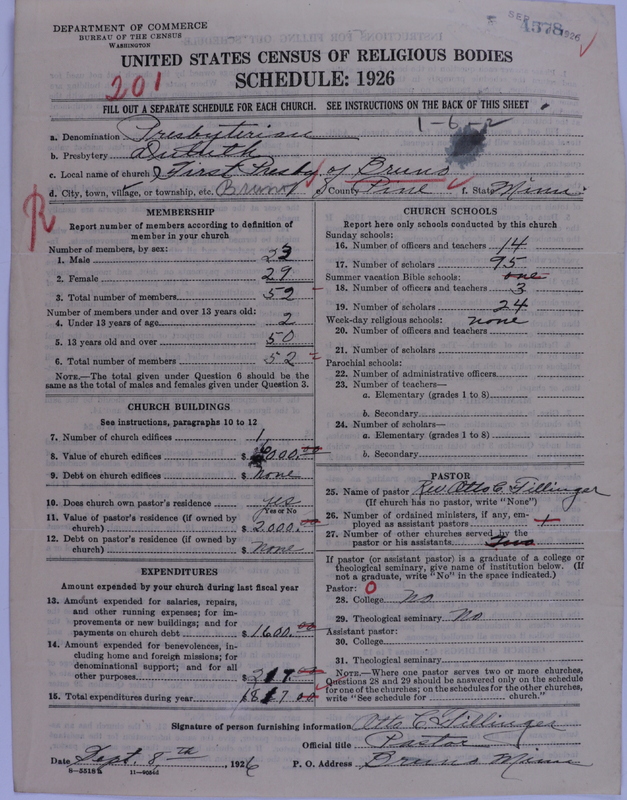 DEPARTMENT OF COMMERCE
BUREAU OF THE CENSUS
WASHINGTON
SEP 1926
4578
UNITED STATES CENSUS OF RELIGIOUS BODIES
SCHEDULE: 1926
201
FILL OUT A SEPARATE SCHEDULE FOR EACH CHURCH. SEE INSTRUCTIONS ON THE BACK OF THIS SHEET
1-6-2
a. Denomination Presbyterian
b. Presbytery Duluth
c. Local name of church First Presby of Bruno
d. City, town, village, or township, etc. Bruno e. County Pine f. State Minn
R
MEMBERSHIP
Report number of members according to definition of member in your church
Number of members, by sex:
1. Male 23
2. Female 29
3. Total number of members 52
Number of members under and over 13 years old:
4. Under 13 years of age 2
5. 13 years old and over 50
6. Total number of members 52
NOTE.—The total given under Question 6 should be the same as the total of males and females given under Question 3.
CHURCH BUILDINGS
See instructions, paragraphs 10 to 12
7. Number of church edifices 1
8. Value of church edifices $ 6000.00
9. Debt on church edifices $ none
10. Does church own pastor's residence yes
Yes or No
11. Value of pastor's residence (if owned by church) $ 2000.00
12. Debt on pastor's residence (if owned by church) $ none
EXPENDITURES
Amount expended by your church during last fiscal year
13. Amount expended for salaries, repairs, and other running expenses; for improvements or new buildings; and for payments on church debt $ 1600.00
14. Amount expended for benevolences, including home and foreign missions; for denominational support; and for all other purposes $ 217.00
15. Total expenditures during year 1817 00
CHURCH SCHOOLS
Report here only schools conducted by this church
Sunday schools:
16. Number of officers and teachers 14
17. Number of scholars 95
Summer vacation Bible schools: one
18. Number of officers and teachers 3
19. Number of scholars 24
Week-day religious schools: none
20. Number of officers and teachers
21. Number of scholars
Parochial schools:
22. Number of administrative officers
23. Number of teachers—
a. Elementary (grades 1 to 8)
b. Secondary
24. Number of scholars—
a. Elementary (grades 1 to 8)
b. Secondary
PASTOR
25. Name of pastor Rev Otto C. Fillinger
(If church has no pastor, write "None")
26. Number of ordained ministers, if any, employed as assistant pastors
27. Number of other churches served by the pastor or his assistants Two
If pastor (or assistant pastor) is a graduate of a college or theological seminary, give name of institution below. (If not a graduate, write "No" in the space indicated.)
Pastor: 0
28. College No
29. Theological seminary No
Assistant pastor:
30. College
31. Theological seminary
NOTE.—Where one pastor serves two or more churches, Questions 28 and 29 should be answered only on the schedule for one of the churches; on the schedules for the other churches, write "See schedule for church."
Signature of person furnishing information Otto C. Fillinger
Official title Pastor
Date Sept. 8th, 1926 P. O. Address Bruno Minn
8-5518a 11-9054d